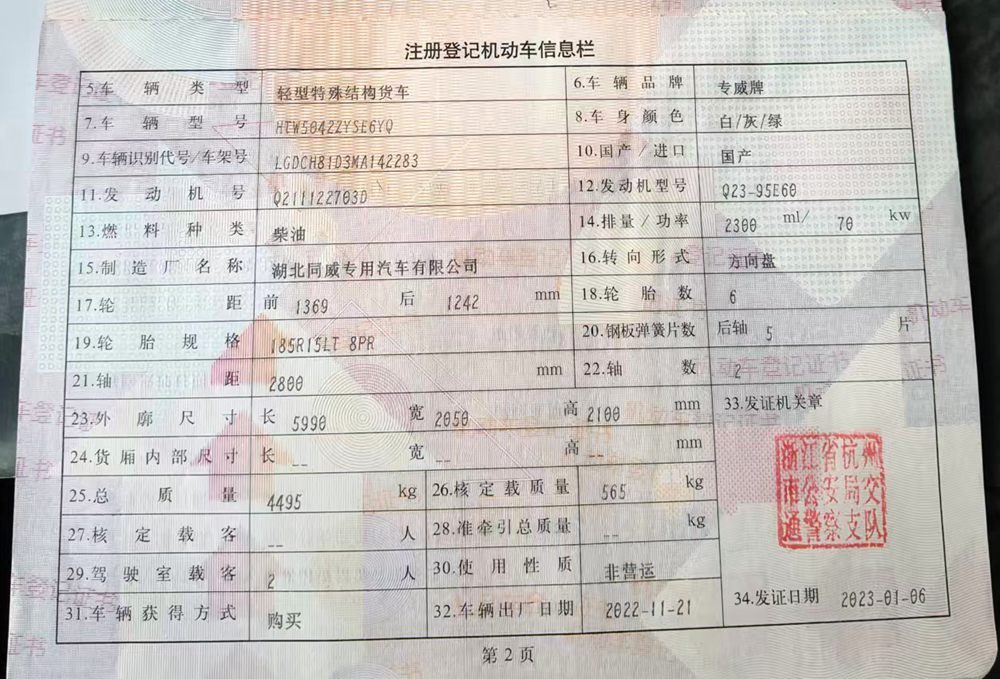 注册登记机动车信息栏
5.车辆类型 轻型特殊结构货车 6.车辆品牌 专威牌
7.车辆型号 HTW5042ZYSE6YQ 8.车身颜色 白/灰/绿
9.车辆识别代号/车架号 LGDCH81D3MA142283 10.国产/进口 国产
11.发动机号 Q211122703D 12.发动机型号 Q23-95E60
13.燃料种类 柴油 14.排量/功率 2300 ml/ 70 kw
15.制造厂名称 湖北同威专用汽车有限公司 16.转向形式 方向盘
17.轮距 前 1369 后 1242 mm 18.轮胎数 6
19.轮胎规格 185R15LT 8PR 20.钢板弹簧片数 后轴 5 片
21.轴距 2800 mm 22.轴数 2
23.外廓尺寸 长 5990 宽 2050 高 2100 mm 33.发证机关章
24.货厢内部尺寸 长 -- 宽 -- 高 -- mm
浙江省杭州
市公安局交
通警察支队
25.总质量 4495 kg 26.核定载质量 565 kg
27.核定载客 -- 人 28.准牵引总质量 -- kg
29.驾驶室载客 2 人 30.使用性质 非营运
31.车辆获得方式 购买 32.车辆出厂日期 2022-11-21 34.发证日期 2023-01-06
第2页